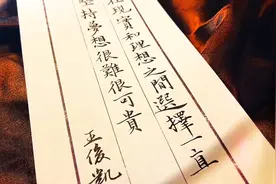 在現實和理想之間選擇一直
堅持夢想很難很可貴
王俊凱